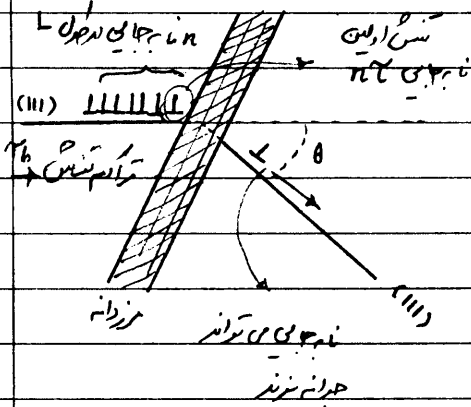 n نابه‌جایی در طول L
تنش اولین
نابه‌جایی nτ
(111)
تراکم تنش τb
θ
(111)
مرزدانه
نابه‌جایی می‌تواند
جوانه بزند